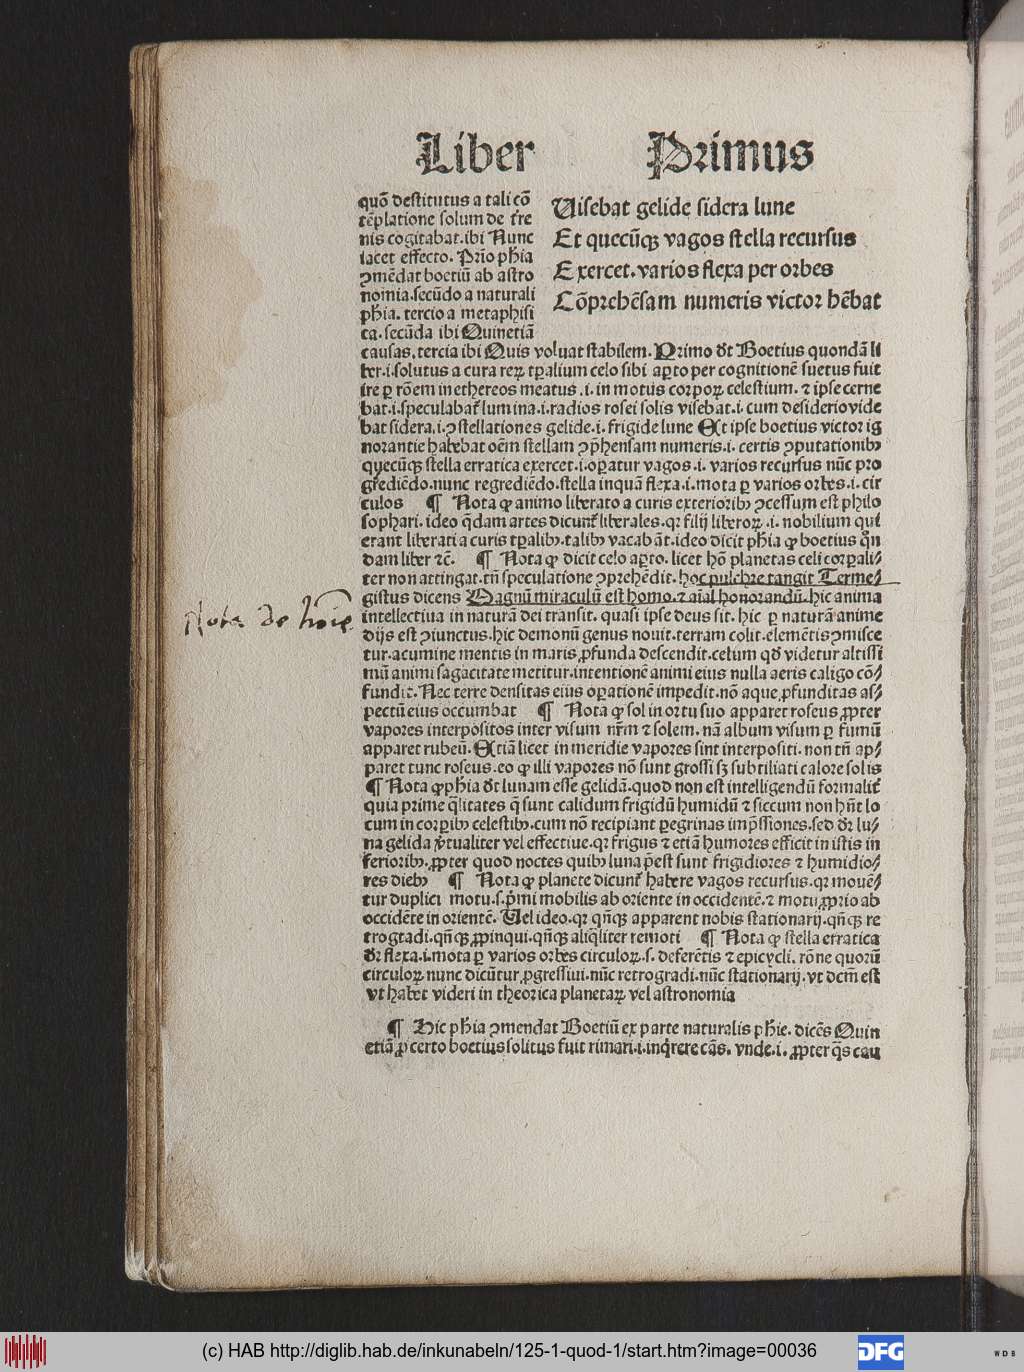 Liber Primus
quō destitutus a tali cō
tēplatione solum de t̄re
nis cogitabat.ibi Nunc
iacet effecto. Prīo ph̄ia
ꝯmēdat boetiū ab astro
nomia.secūdo a naturali
ph̄ia. tercio a metaphisi
ca. secūda ibi Quinetiā
Uisebat gelide sidera lune
Et quecūqꝫ vagos stella recursus
Exercet.varios flexa per orbes
Cōprehēsam numeris victor hēbat
causas.tercia ibi Quis voluat stabilem. Primo dt̄ Boetius quondā li
ber.i.solutus a cura reꝝ tꝑalium celo sibi aꝑto per cognitionē suetus fuit
ire ꝑ rōem in ethereos meatus .i. in motus corpoꝝ celestium. ⁊ ipse cerne
bat.i.speculabat̄ lumina.i.radios rosei solis visebat.i. cum desiderio vide
bat sidera.i.ꝯstellationes gelide.i. frigide lune Et ipse boetius victor ig
norantie habebat oēm stellam ꝯp̄hensam numeris.i. certis ꝯputationibꝫ
quecūqꝫ stella erratica exercet.i.oꝑatur vagos.i. varios recursus nūc pro
grediēdo.nunc regrediēdo.stella inquā flexa.i.mota ꝑ varios orbes.i. cir
culos ¶ Nota ꝙ animo liberato a curis exterioribꝫ ꝯcessum est philo
sophari. ideo q̄dam artes dicunt̄ liberales.qꝛ filij liberoꝝ .i. nobilium qui
erant liberati a curis tꝑalibꝫ.talibꝫ vacabāt.ideo dicit ph̄ia ꝙ boetius qn̄
dam liber ⁊c̄. ¶ Nota ꝙ dicit celo aꝑto. licet hō planetas celi corꝑali⸗
ter non attingat.tn̄ speculatione ꝯprehēdit. hoc pulchre tangit Terme⸗
gistus dicens Magnū miraculū est homo.⁊ aīal honorandū.hic anima
intellectiua in naturā dei transit. quasi ipse deus sit. hic ꝑ naturā anime
dijs est ꝯiunctus.hic demonū genus nouit.terram colit.elemētis ꝯmisce
tur.acumine mentis in maris ꝓfunda descendit.celum qd̄ videtur altissi
mū animi sagacitate metitur.intentionē animi eius nulla aeris caligo cō⸗
fundit. Nec terre densitas eius oꝑationē impedit.nō aque ꝓfunditas as⸗
pectū eius occumbat ¶ Nota ꝙ sol in ortu suo apparet roseus ꝓpter
vapores interpositos inter visum nr̄m ⁊ solem. nā album visum ꝑ fumū
apparet rubeū. Etiā licet in meridie vapores sint interpositi. non tn̄ ap⸗
paret tunc roseus.eo ꝙ illi vapores nō sunt grossi sꝫ subtiliati calore solis
¶ Nota ꝙ ph̄ia dt̄ lunam esse gelidā.quod non est intelligendū formalit̄
quia prime q̄litates q̄ sunt calidum frigidū humidū ⁊ siccum non hn̄t lo
cum in corꝑibꝫ celestibꝫ.cum nō recipiant ꝑegrinas imp̄ssiones.sed dꝛ lu⸗
na gelida v̄tualiter vel effectiue.qꝛ frigus ⁊ etiā humores efficit in istis in
ferioribꝫ. ꝓpter quod noctes quibꝫ luna p̄est sunt frigidiores ⁊ humidio⸗
res diebꝫ ¶ Nota ꝙ planete dicunt̄ habere vagos recursus.qꝛ mouē⸗
tur duplici motu.s.pͥmi mobilis ab oriente in occidentē.⁊ motu ꝓprio ab
occidēte in orientē. Uel ideo.qꝛ qn̄qꝫ apparent nobis stationarij.qn̄qꝫ re
trogradi.qn̄qꝫ ꝓpinqui.qn̄qꝫ aliq̄liter remoti ¶ Nota ꝙ stella erratica
dꝛ flexa.i.mota ꝑ varios orbes circuloꝝ.s. deferētis ⁊ epicycli. rōne quorū
circuloꝝ nunc dicūtur ꝓgressiui.nūc retrogradi.nūc stationarij. vt dcm̄ est
vt habet videri in theorica planetaꝝ vel astronomia
¶ Hic ph̄ia ꝯmendat Boetiū ex parte naturalis ph̄ie. dicēs Quin
etiā ꝓ certo boetius solitus fuit rimari.i.inqͥrere cās. vnde.i. ꝓpter q̄s cau
Nota de hoīe
(c) HAB http://diglib.hab.de/inkunabeln/125-1-quod-1/start.htm?image=00036
DFG
WDB